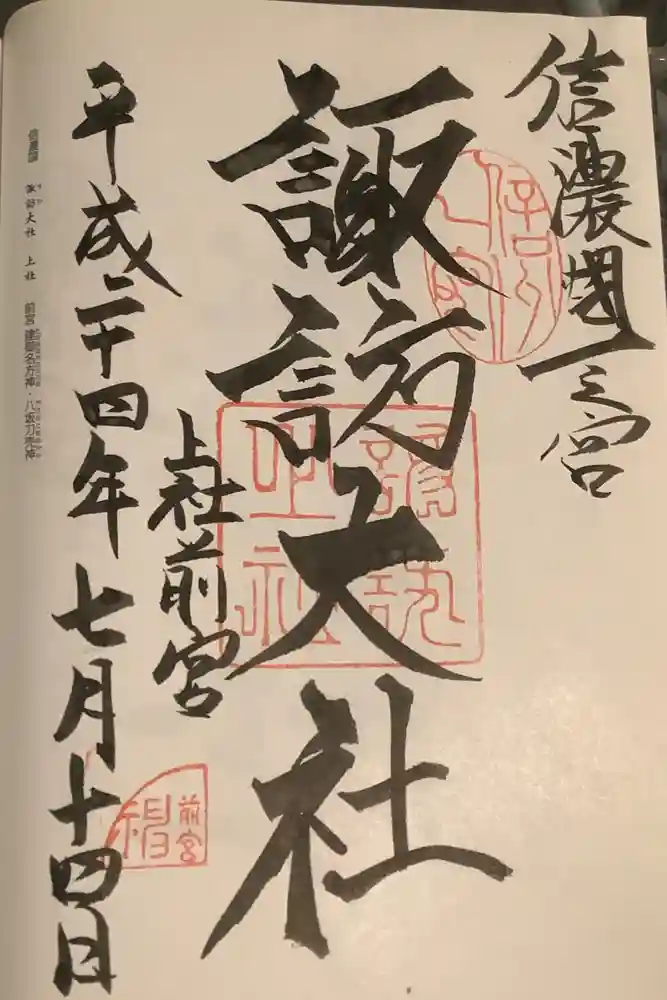 信濃國一之宮
諏訪大社
上社前宮
平成二十四年七月十四日
前宮
信濃國 諏訪大社 上社 前宮 建御名方神・八坂刀売神